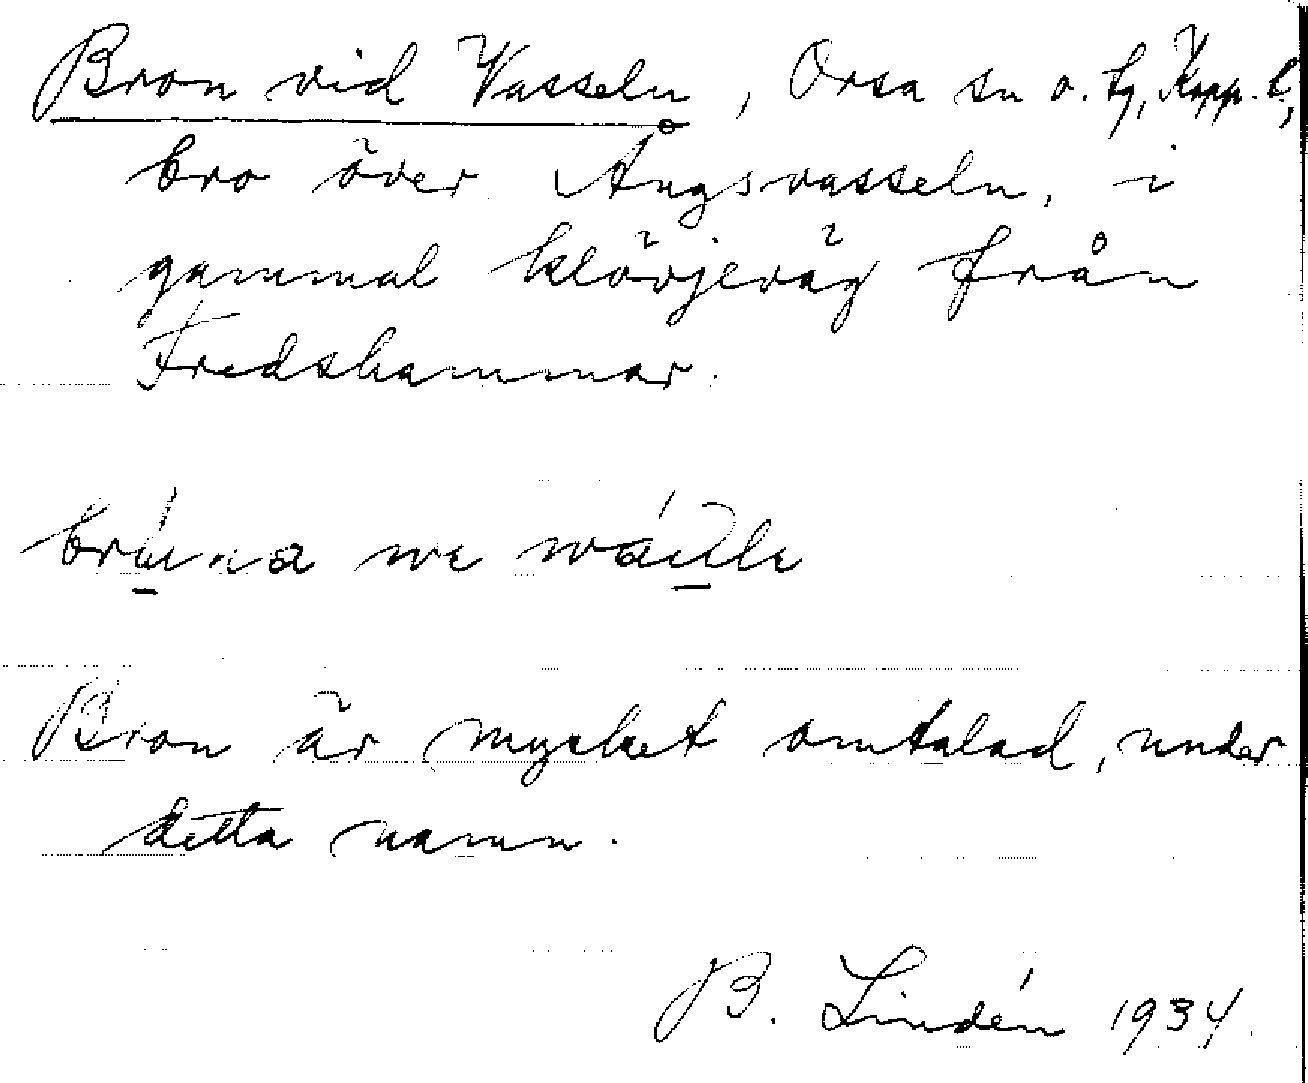 Bron vid Vasseln, Orsa sn o. tg, Kopp. l.,
bro över Ångsvasseln, i
gammal klövjeväg från
Fredshammar.
Bron är mycket omtalad, under
detta namn.
B. Lindén 1934.